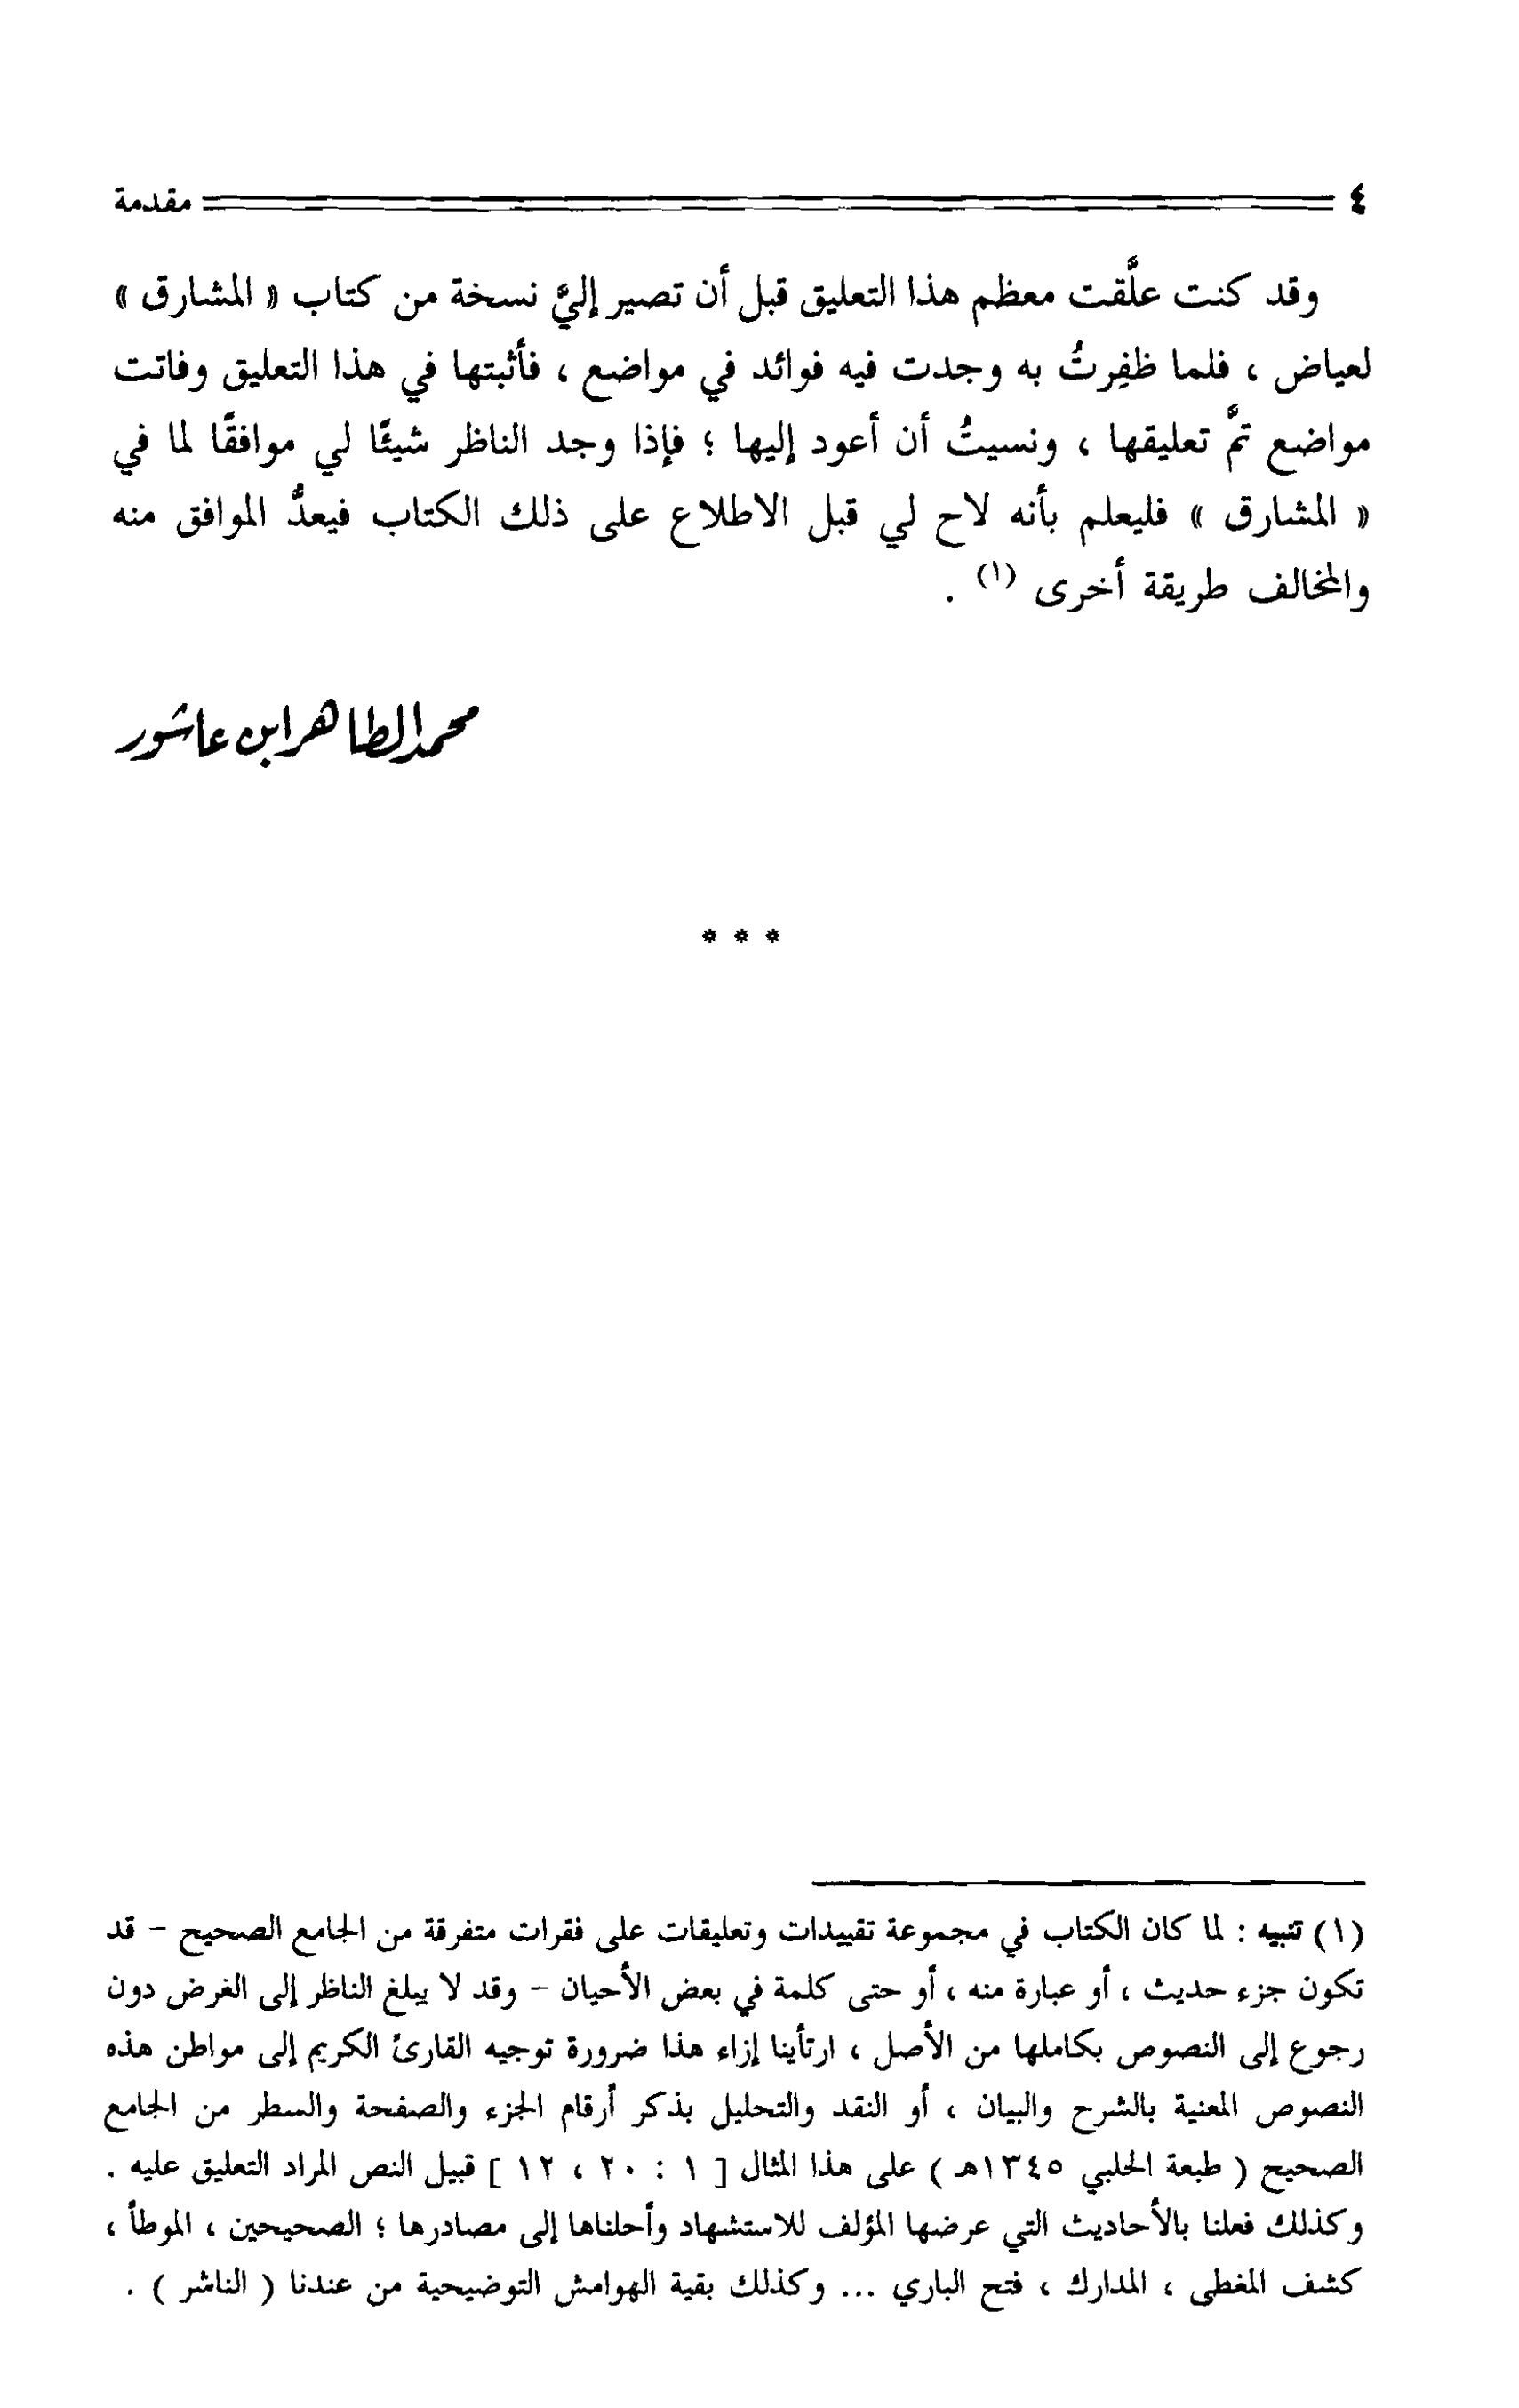 ٤ مقدمة
وقد كنت علَّقت معظم هذا التعليق قبل أن تصير إليَّ نسخة من كتاب « المشارق »
لعياض ، فلما ظفِرتُ به وجدت فيه فوائد في مواضع ، فأثبتها في هذا التعليق وفاتت
مواضع تمَّ تعليقها ، ونسيتُ أن أعود إليها ؛ فإذا وجد الناظر شيئًا لي موافقًا لما في
« المشارق » فليعلم بأنه لاح لي قبل الاطلاع على ذلك الكتاب فيعدُّ الموافق منه
والمخالف طريقة أخرى (١) .
محمد الطاهر ابن عاشور
* * *
(١) تنبيه : لما كان الكتاب في مجموعة تقييدات وتعليقات على فقرات متفرقة من الجامع الصحيح - قد
تكون جزء حديث ، أو عبارة منه ، أو حتى كلمة في بعض الأحيان - وقد لا يبلغ الناظر إلى الغرض دون
رجوع إلى النصوص بكاملها من الأصل ، ارتأينا إزاء هذا ضرورة توجيه القارئ الكريم إلى مواطن هذه
النصوص المعنية بالشرح والبيان ، أو النقد والتحليل بذكر أرقام الجزء والصفحة والسطر من الجامع
الصحيح ( طبعة الحلبي ١٣٤٥هـ ) على هذا المثال [ ١ : ٢٠ ، ١٢ ] قبيل النص المراد التعليق عليه .
وكذلك فعلنا بالأحاديث التي عرضها المؤلف للاستشهاد وأحلناها إلى مصادرها ؛ الصحيحين ، الموطأ ،
كشف المغطى ، المدارك ، فتح الباري ... وكذلك بقية الهوامش التوضيحية من عندنا ( الناشر ) .